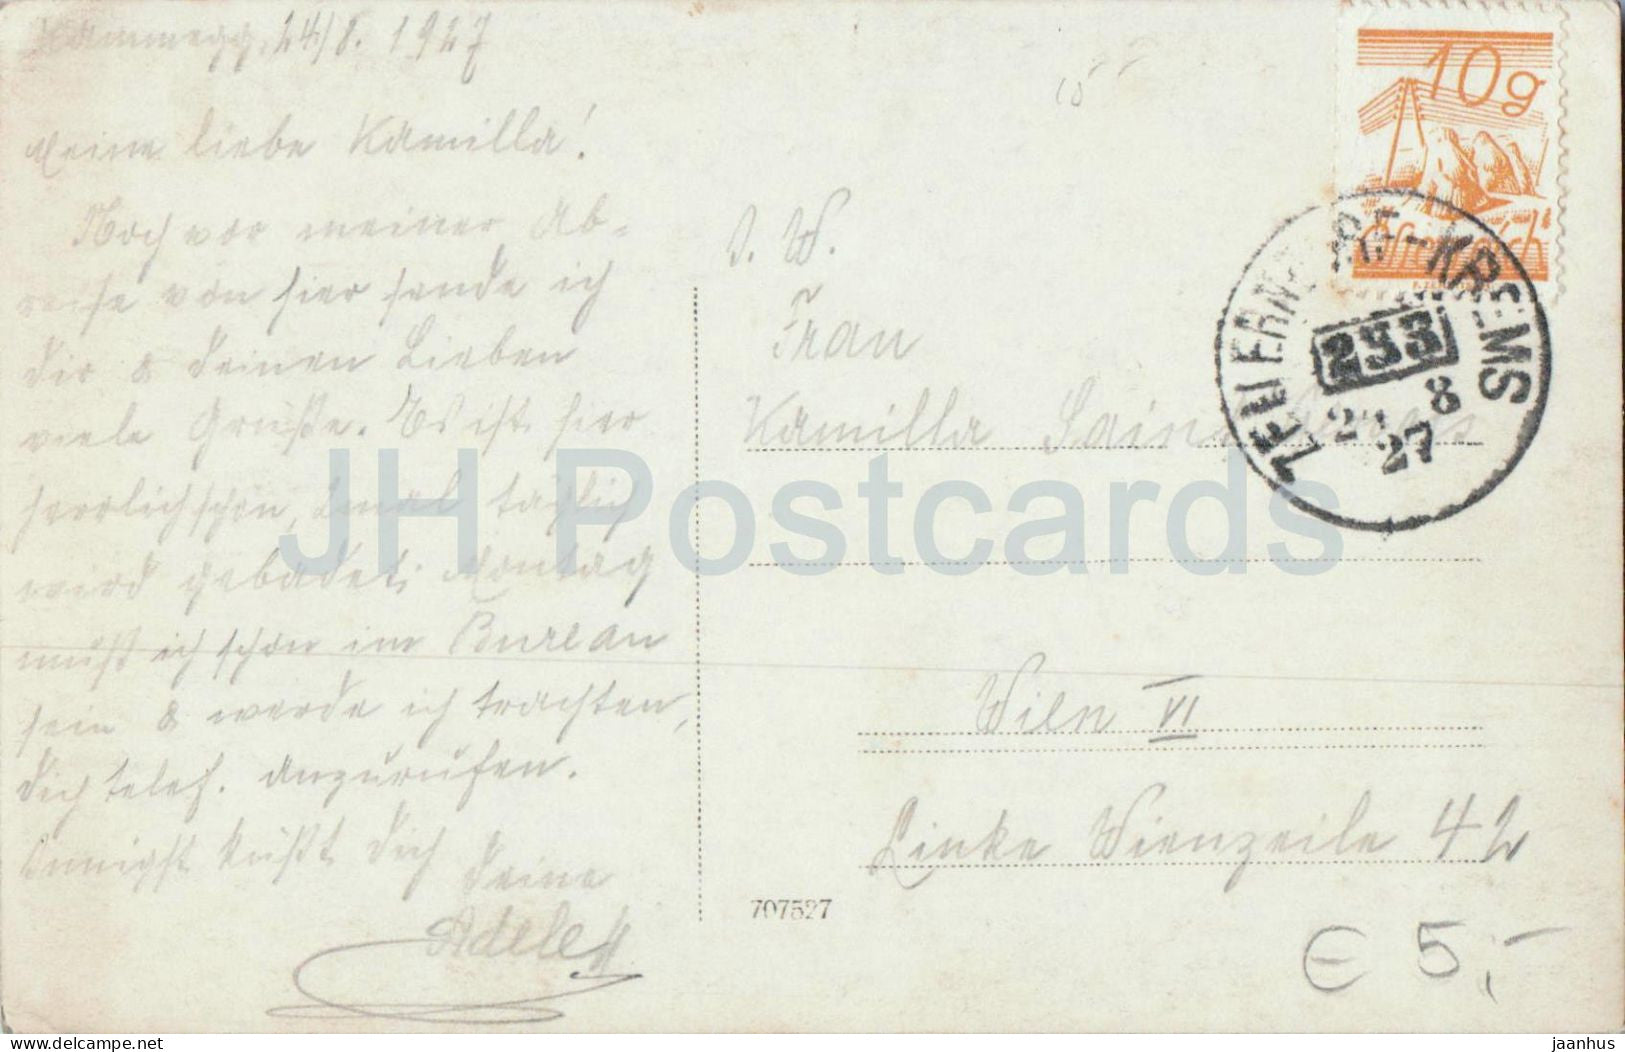 Kammegg, 24/8. 1927
Meine liebe Kamilla!
Noch vor meiner Ab-
reise von hier sende ich
dir & deinen Lieben
viele Grüße. Es ist hier
herrlich schön, 2mal täglich
wird gebadet; Montag
muß ich schon im Bureau
sein & werde ich trachten,
dich telef. anzurufen.
Innigst küßt dich
deine
Adele
I. W.
Frau
Kamilla
Wien VI
Linke Wienzeile 42
707527
€ 5,-
10g
Österreich
KREMS
233
8
27
JH Postcards
My Website: www.jhpostcards.com
jaanhus